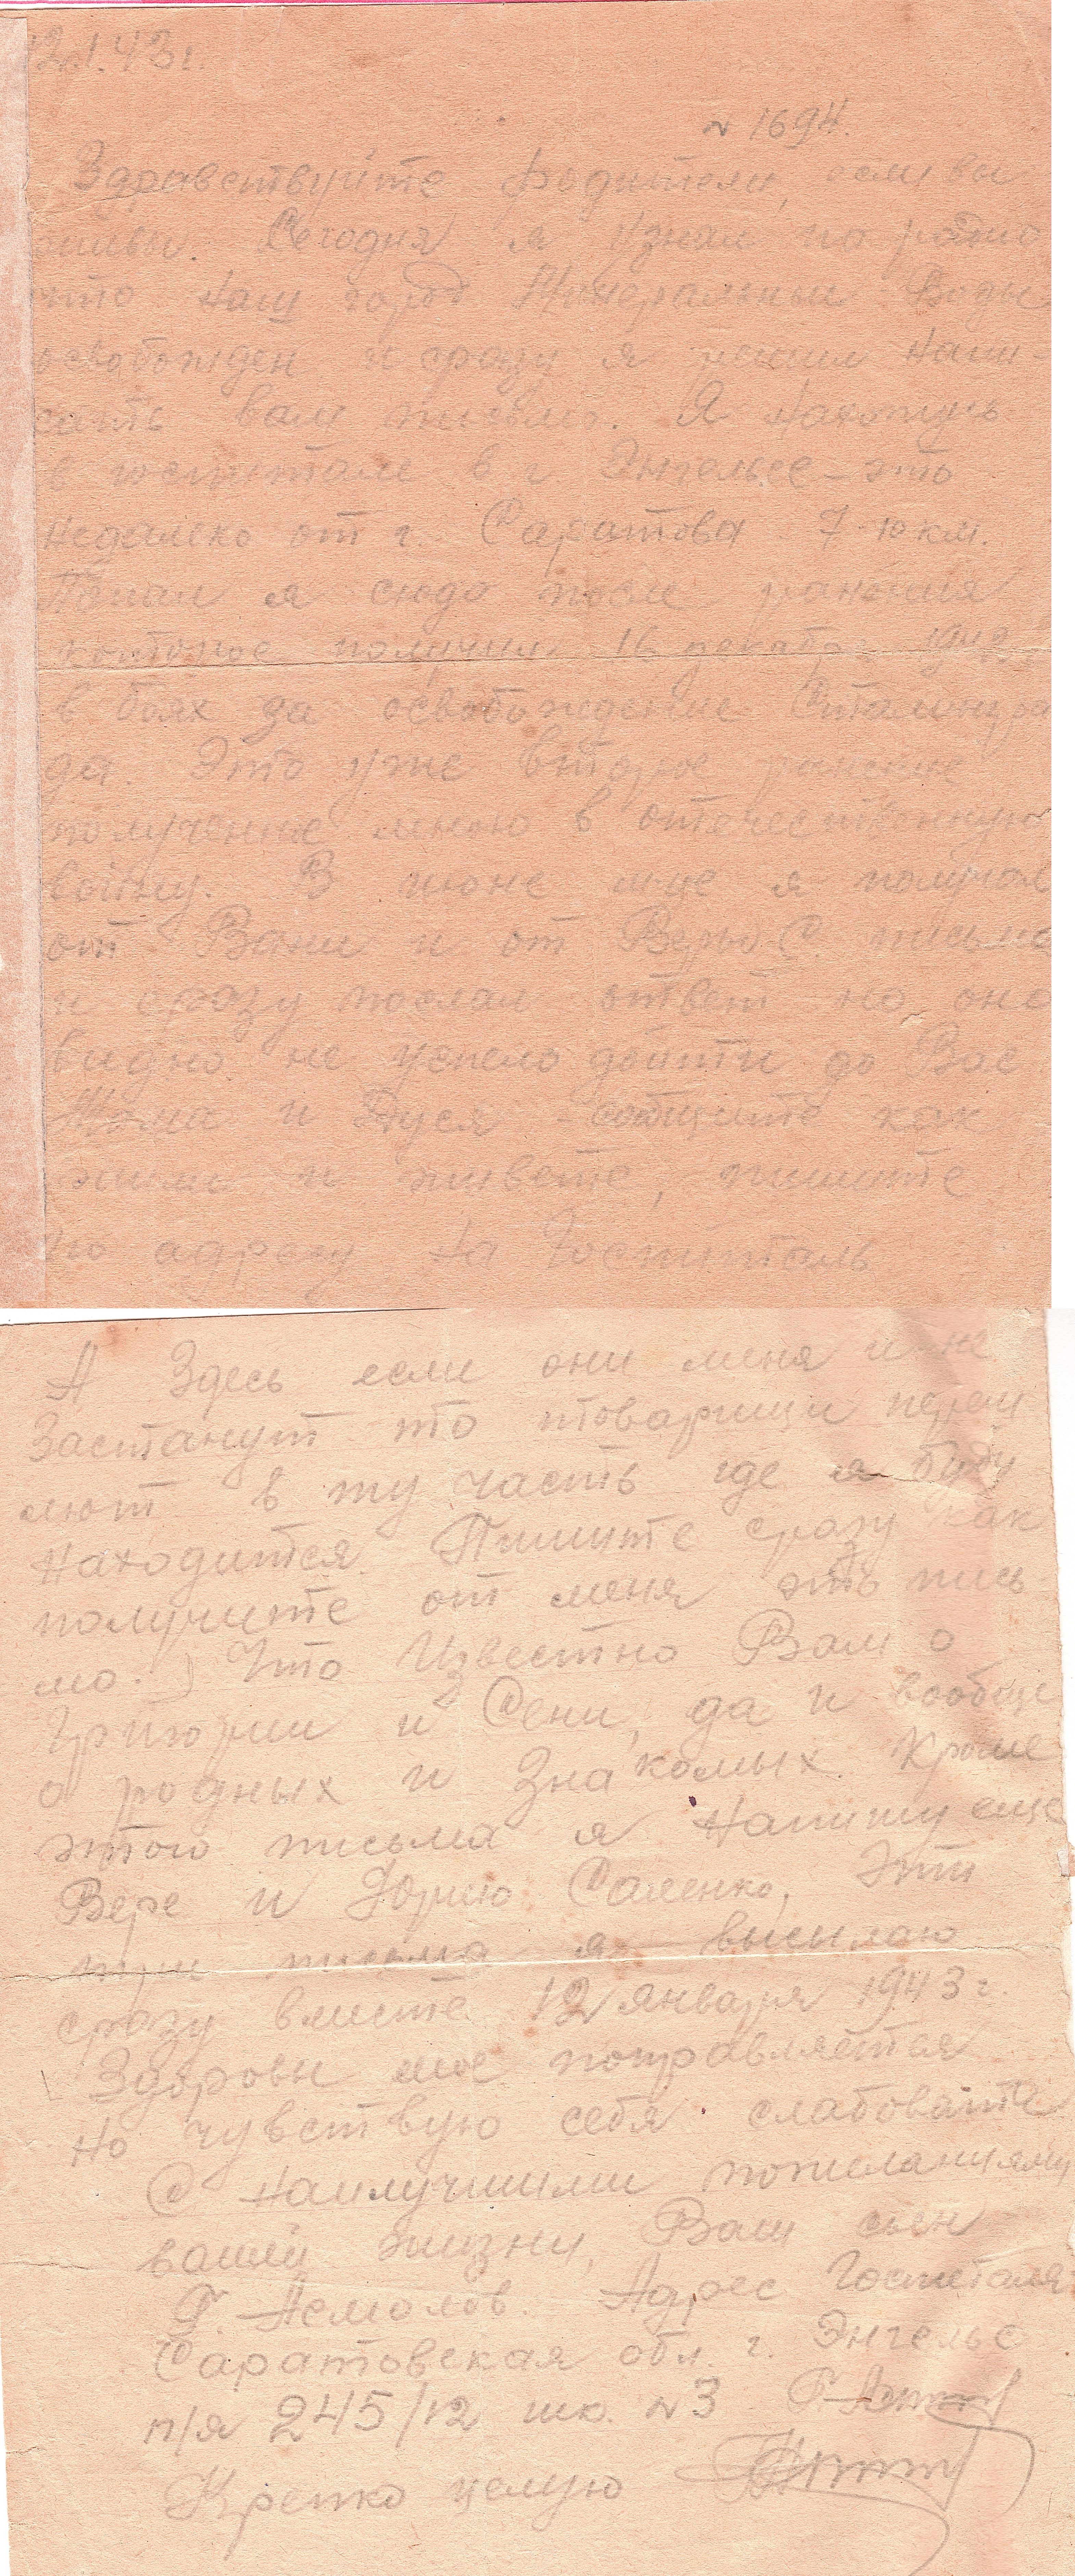 12.1.43г.
N 1694.
Здравствуйте родители, если вы
живы. Сегодня я узнал по радио
что наш город Минеральные Воды
освобожден и сразу я решил напи-
сать вам письмо. Я нахожусь
в госпитале в г. Энгельсе - это
недалеко от г. Саратова 7-10 км.
Попал я сюда после ранения
которое получил 16 декабря 1942
в боях за освобождение Сталингра
да. Это уже второе ранение
полученные мною в отечественную
войну. В июне м-це я получил
от Вани и от Веры С. письма
и сразу послал ответ но оно
видно не успело дойти до Вас
и Дуся - сообщите как
жили и живете, пишите
по адресу на Госпиталь
А Здесь если они меня и не
Застанут то товарищи переш
лют в ту часть где я буду
находится. Пишите сразу как
получите от меня это пись
мо.) Что Известно Вам о
Григории и Сени, да и вообще
о родных и Знакомых. Кроме
этого письма я Напишу еще
Вере и Юрию Саленко, Эти
три письма я высылаю
сразу вместе 12 января 1943 г.
Здоровы мое поправляется
но чувствую себя слабовато
С наилучшими пожеланиями
вашей жизни, Ваш сын
Г. Асмолов. Адрес Госпеталя
Саратовская обл. г. Энгельс
п/я 245/12 N3
Крепко целую